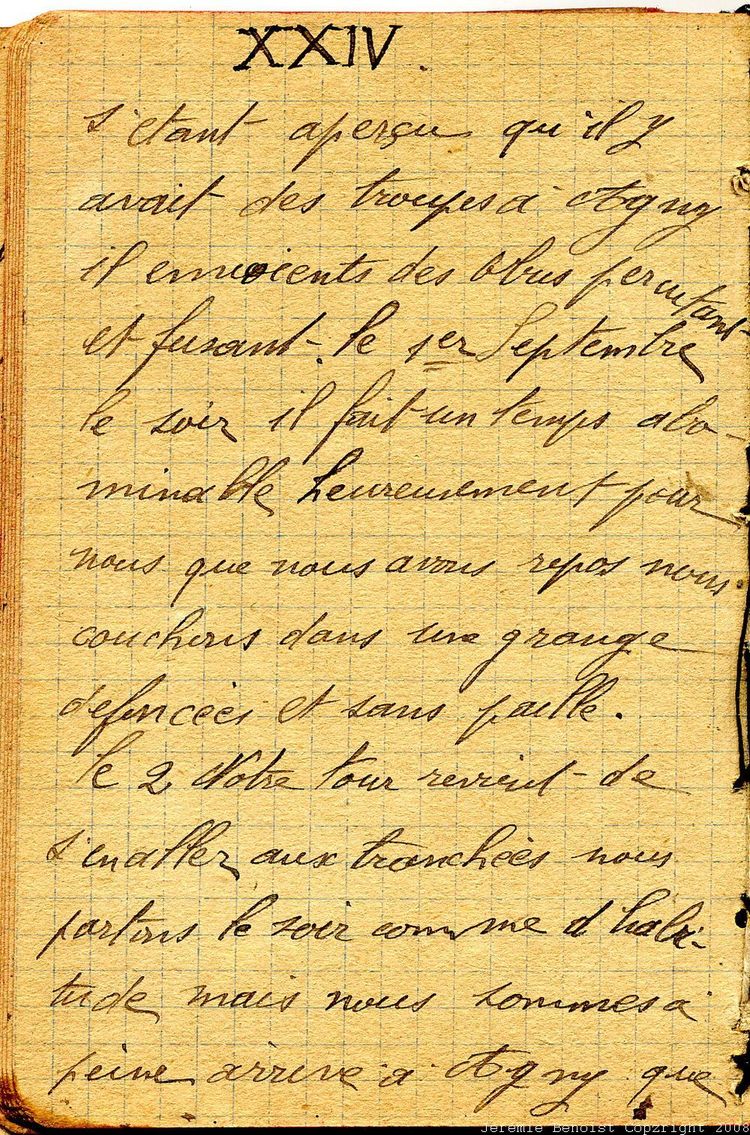 XXIV.
s'etant aperçu qu'il y
avait des troupes à Agny
il envoients des obus percutant
et fusant. le 1er Septembre
le soir il fait un temps abo-
minable heureusement pour
nous que nous avons repos nous
couchons dans une grange
defoncées et sans paille.
le 2 Notre tour revient de
s'en aller aux tranchées nous
partons le soir comme d'habi-
tude mais nous sommes à
peine arrive a Agny que
Jeremie Benoist Copyright 2008